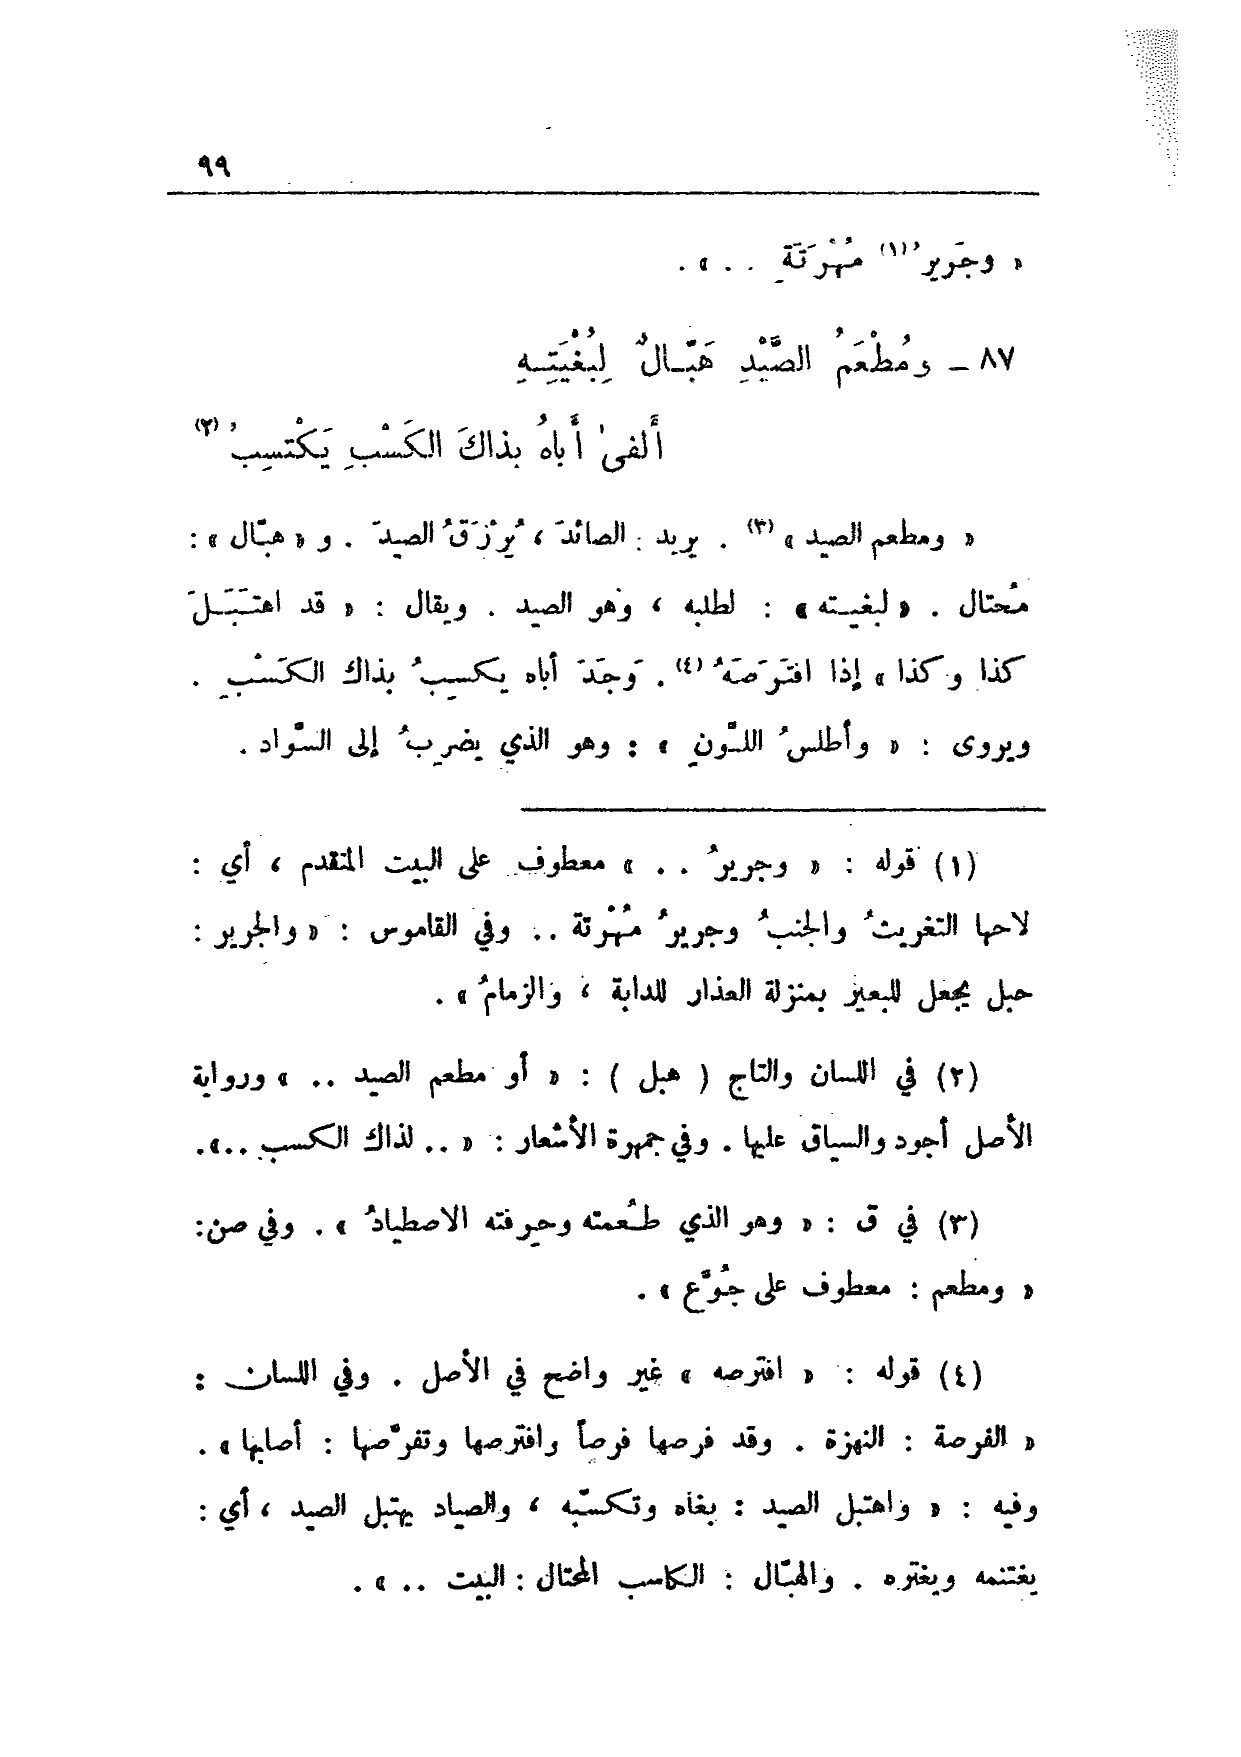 ٩٩
« وجَريرُ (١) مُهْرَتَةٍ . . » .
٨٧ ـ ومُطْعَمُ الصَّيْدِ هَبّـالٌ لِبُغْيَتِـهِ
أَلفىٰ أَباهُ بذاكَ الكَسْبِ يَكْتسِبُ (٢)
« ومطعم الصيد » (٣) . يريد : الصائدَ ، يُرْزَقُ الصيدَ . و « هبّال » :
مُحتال . « لبغيـته » : لطلبه ، وهو الصيد . ويقال : « قد اهتَبَـلَ
كذا وكذا » إذا افتَرَصَهُ (٤) . وَجَدَ أباه يكسِبُ بذاك الكَسْبِ .
ويروى : « وأطلسُ اللـّونِ » : وهو الذي يضرِبُ إلى السّواد .
(١) قوله : « وجريرُ . . » معطوف على البيت المتقدم ، أي :
لاحها التغريثُ والجنبُ وجريرُ مُهْرتة .. وفي القاموس : « والجرير :
حبل يجعل للبعير بمنزلة العذار للدابة ، والزمامُ » .
(٢) في اللسان والتاج ( هبل ) : « أو مطعم الصيد .. » ورواية
الأصل أجود والسياق عليها . وفي جمهرة الأشعار : « .. لذاك الكسب ..» .
(٣) في ق : « وهو الذي طـُعمته وحِرفته الاصطيادُ » . وفي صن:
« ومطعم : معطوف على جُوَّع » .
(٤) قوله : « افترصه » غير واضح في الأصل . وفي اللسان :
« الفرصة : النهزة . وقد فرصها فرصاً وافترصها وتفرّصها : أصابها » .
وفيه : « واهتبل الصيد : بغاه وتكسّبه ، والصياد يهتبل الصيد ، أي :
يغتنمه ويغتره . والهبّال : الكاسب المحتال : البيت .. » .